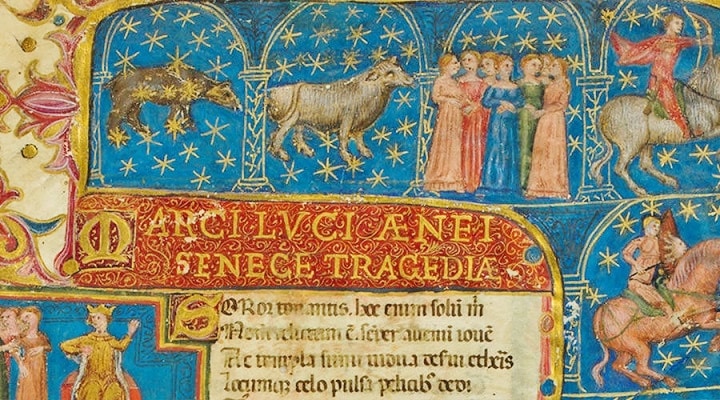 MARCI LVCI ÆNEI
SENECE TRAGEDIÆ
SOROR tonantis. hoc enim solū m̄
relictum ē. semꝑ alienū iouē
Ac templa sūmi uidua deserui ethe͛is
locumqꝫ celo pulsa pelicibꝰ dedi